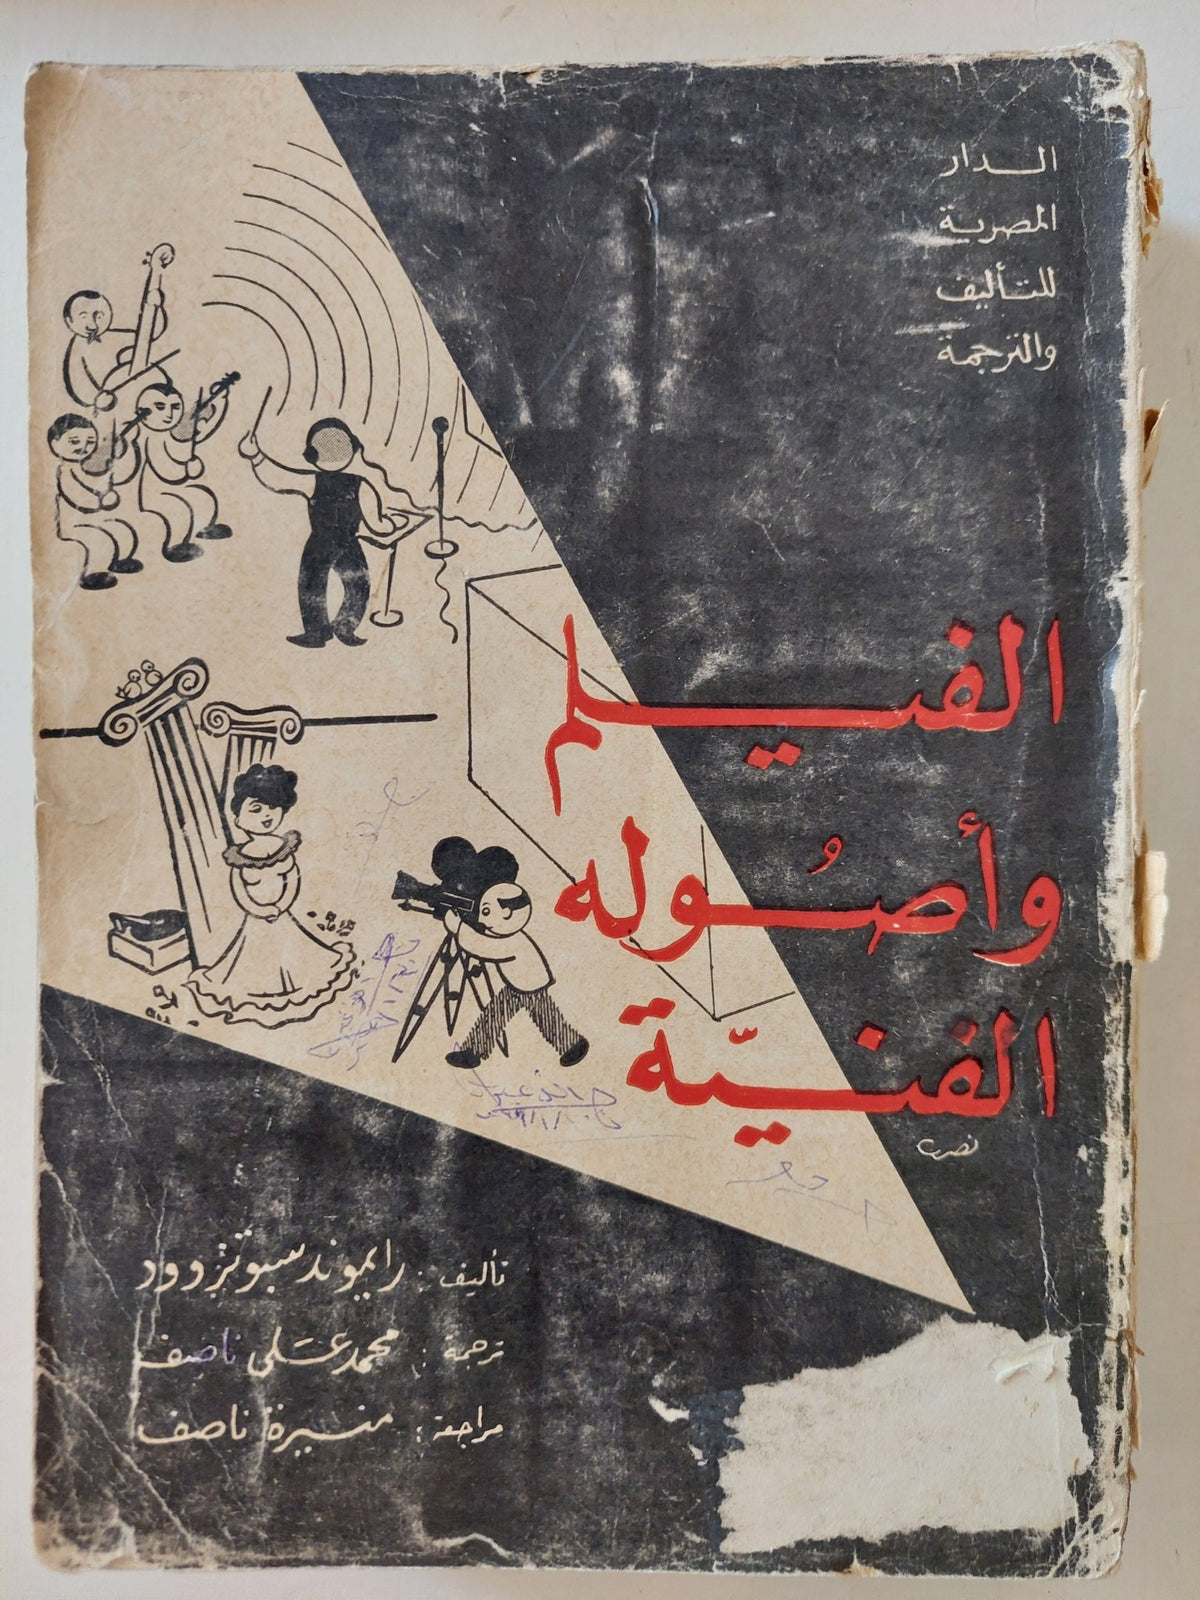 الدار
المصرية
للتأليف
والترجمة
الفيلم
وأصُوله
الفنيّة
نصر
تأليف : رايموند سبوتزوود
ترجمة : محمد على ناصف
مراجعة : منيرة ناصف